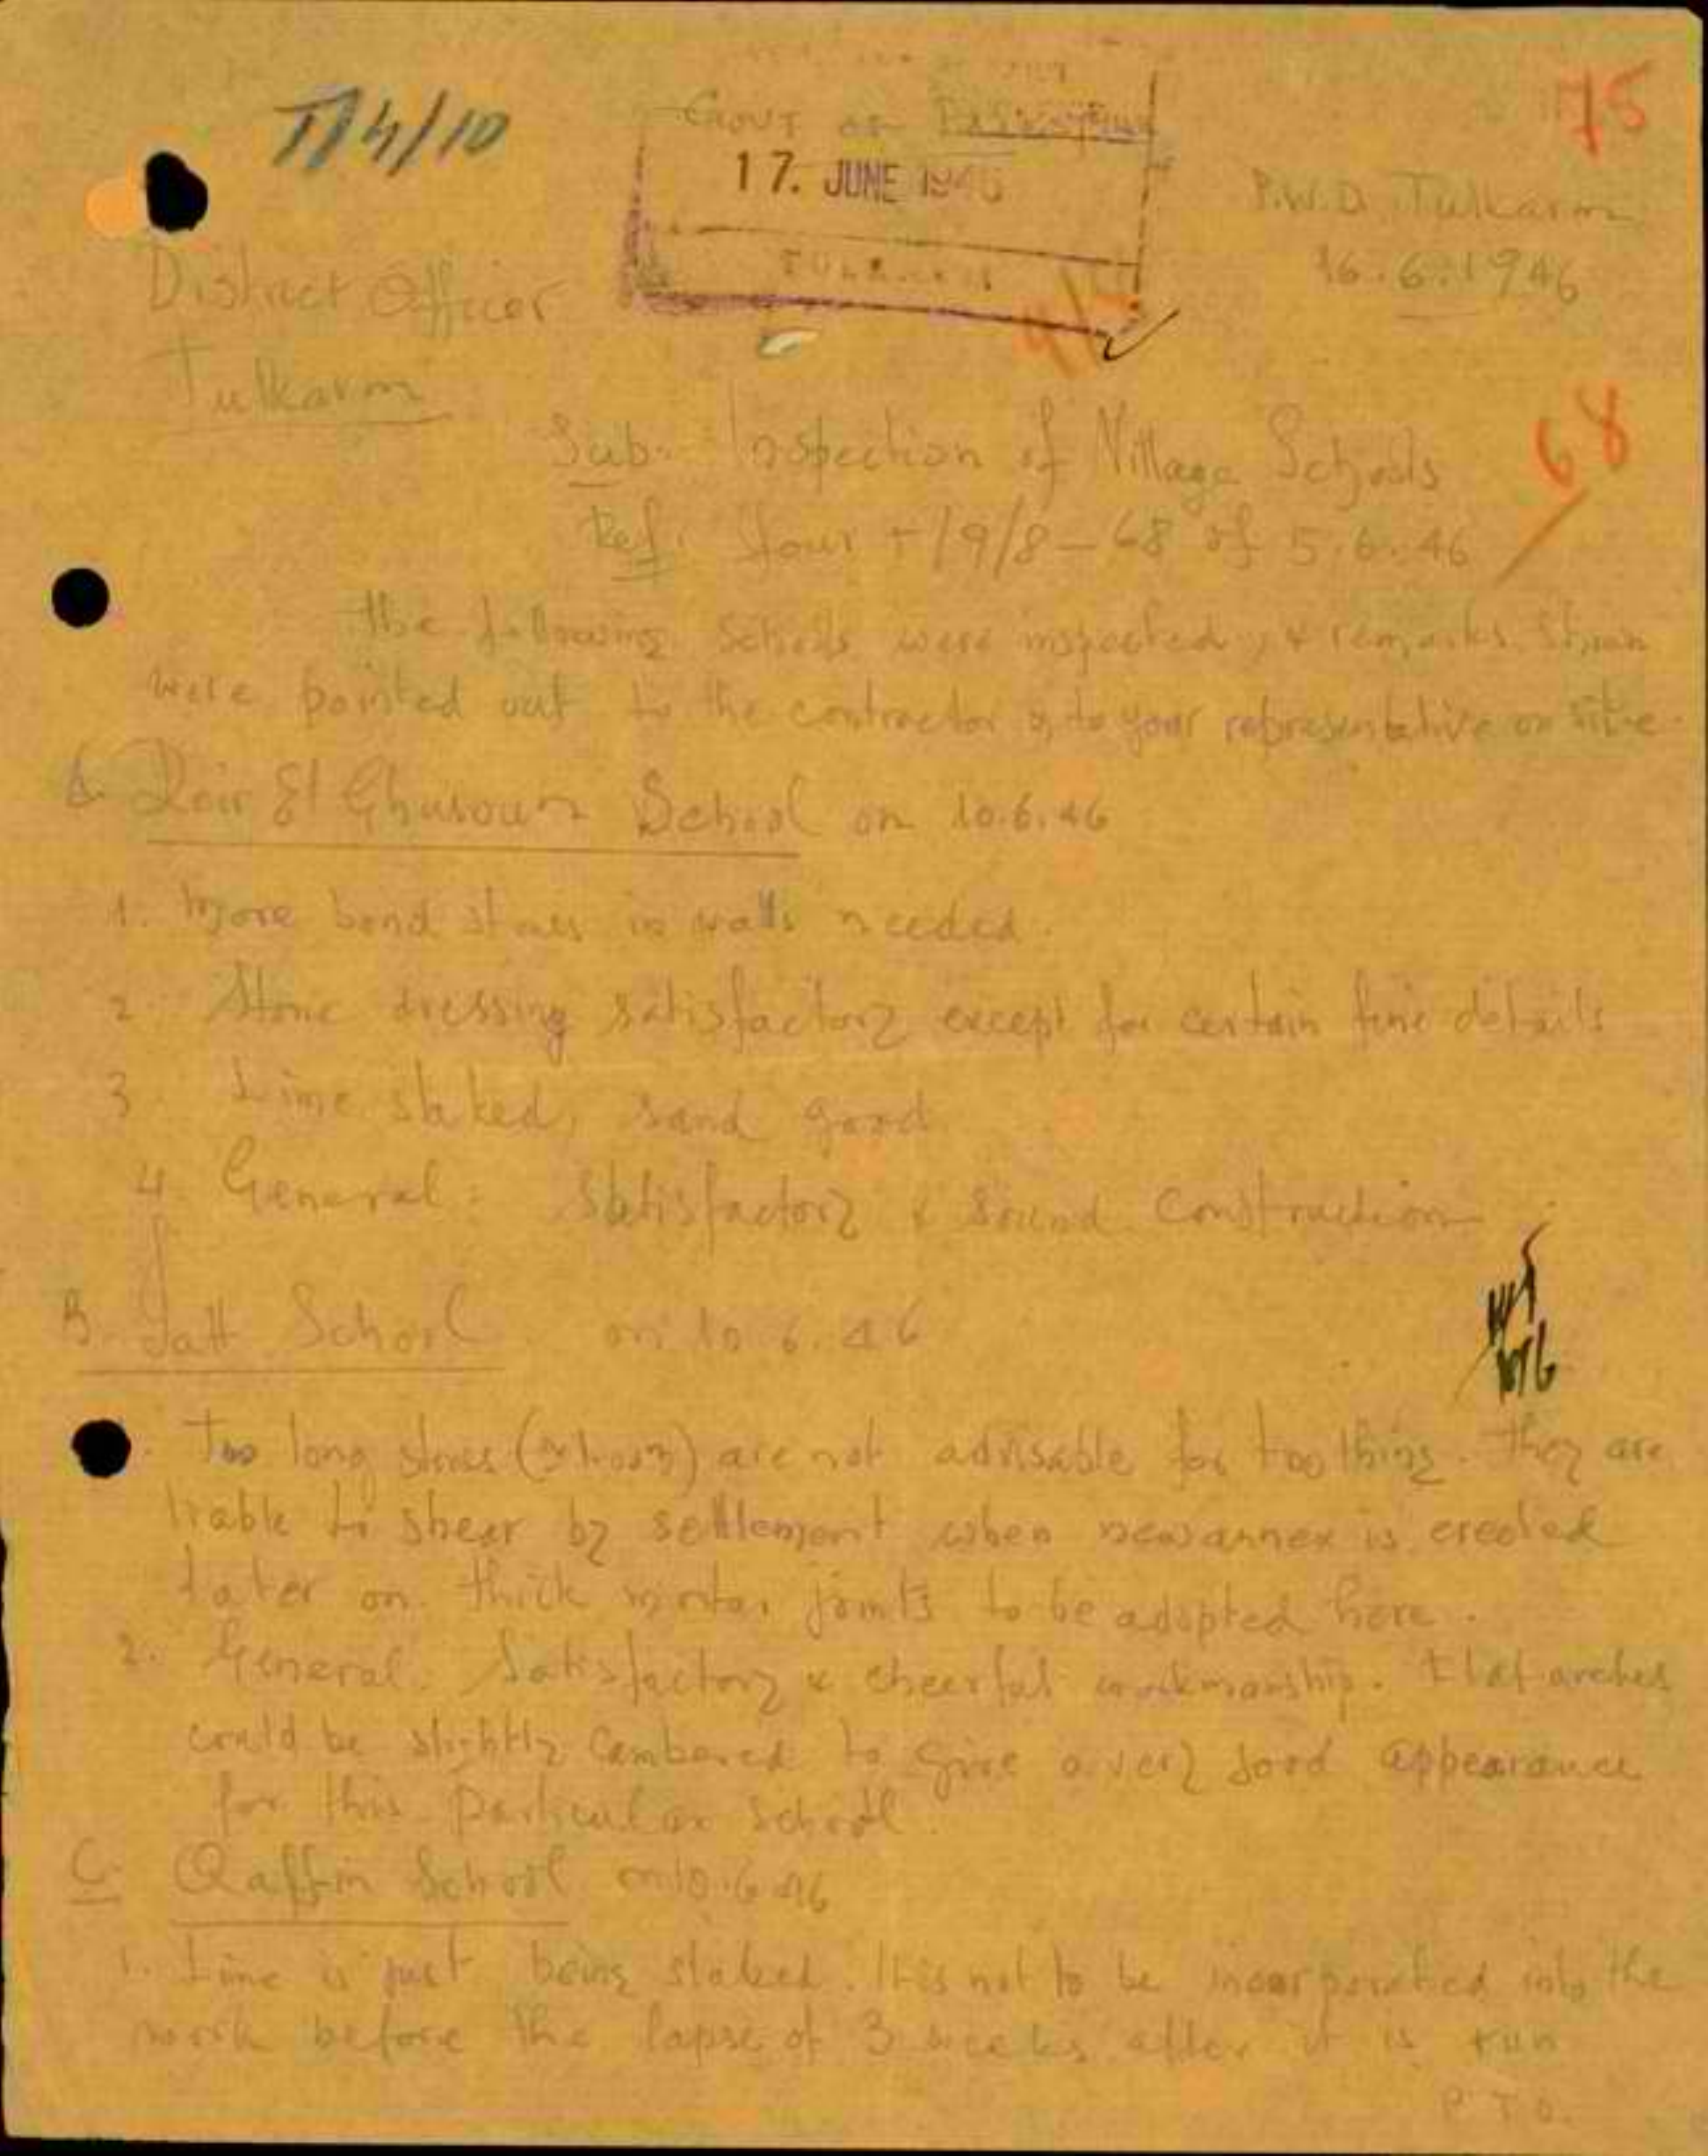 T/4/10
75
GOVT OF PALESTINE
17. JUNE 1946
TULKARM
P.W.D. Tulkarm
16.6.1946
District Officer
Tulkarm
68
Sub: Inspection of Village Schools
Ref: Your T/9/8-68 of 5.6.46
The following schools were inspected, & remarks shown
were pointed out to the contractor & to your representative on site.
A. Deir El Ghusoun School on 10.6.46
1. More bond stones in walls needed.
2. Stone dressing satisfactory except for certain fine details
3. Lime slaked, sand good
4. General: Satisfactory & sound construction
B. Jatt School on 10.6.46
Too long stones are not advisable for toothing. They are
liable to shear by settlement when new annex is erected
later on. Thick mortar joints to be adopted here.
2. General. Satisfactory & cheerful workmanship. Flat arches
could be slightly cambered to give a very good appearance
for this particular school.
C. Qaffin School on 10.6.46
1. Lime is just being slaked. It is not to be incorporated into the
work before the lapse of 3 weeks after it is run
P.T.O.